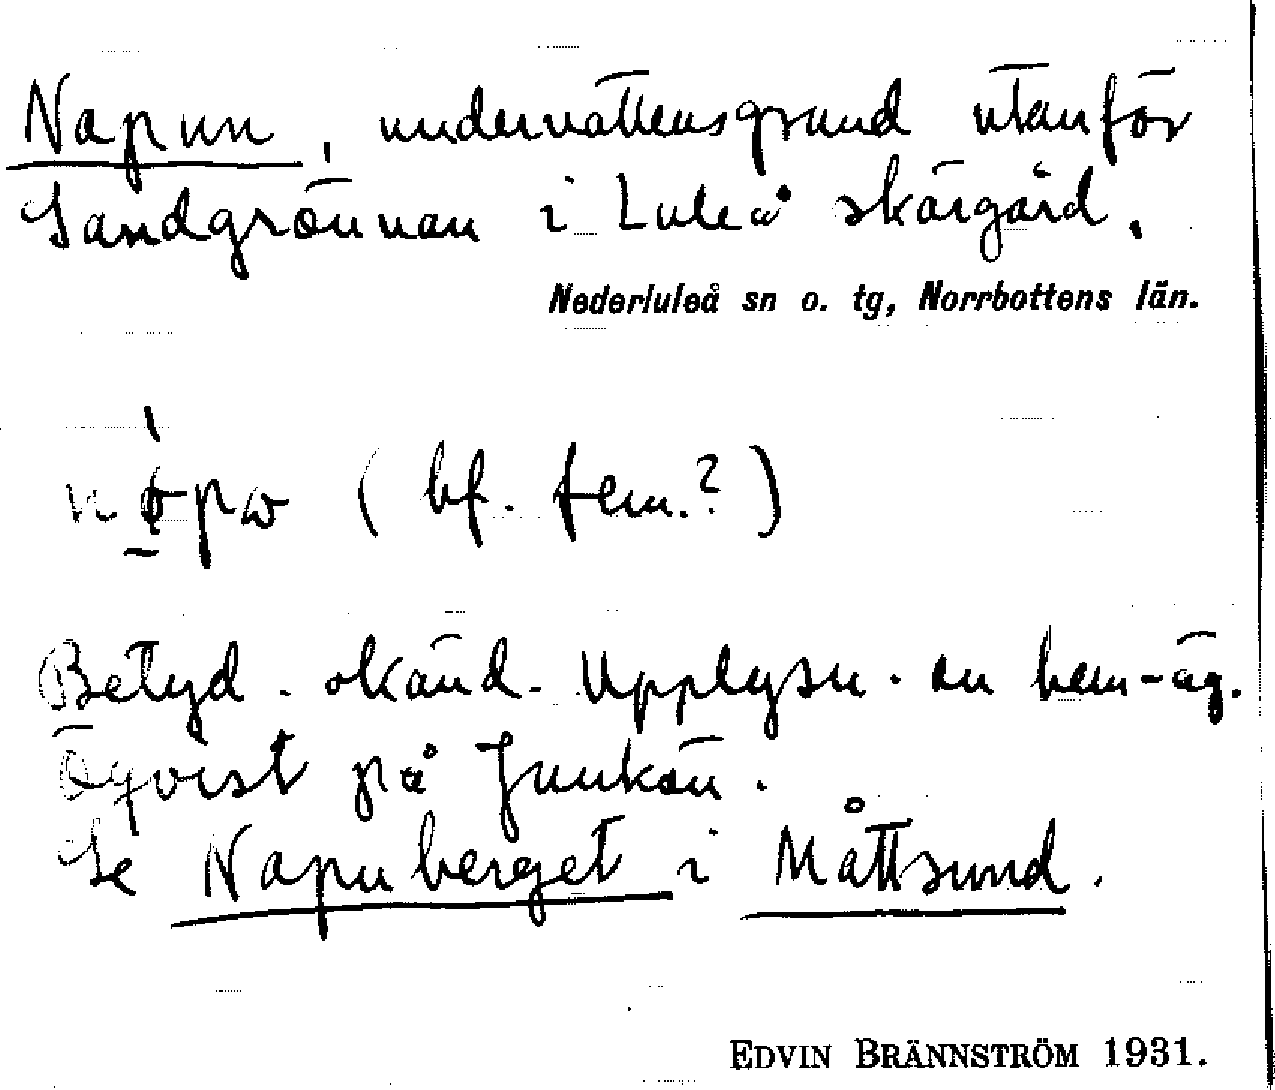 Napun, undervattensgrund utanför
Sandgrönnan i Luleå skärgård.
Nederluleå sn o. tg, Norrbottens län.
(bf. fem.?)
Betyd. okänd. Upplysn. av hem-äg.
Öqvist på Junkön.
Se Napuberget i Måttsund.
EDVIN BRÄNNSTRÖM 1931.